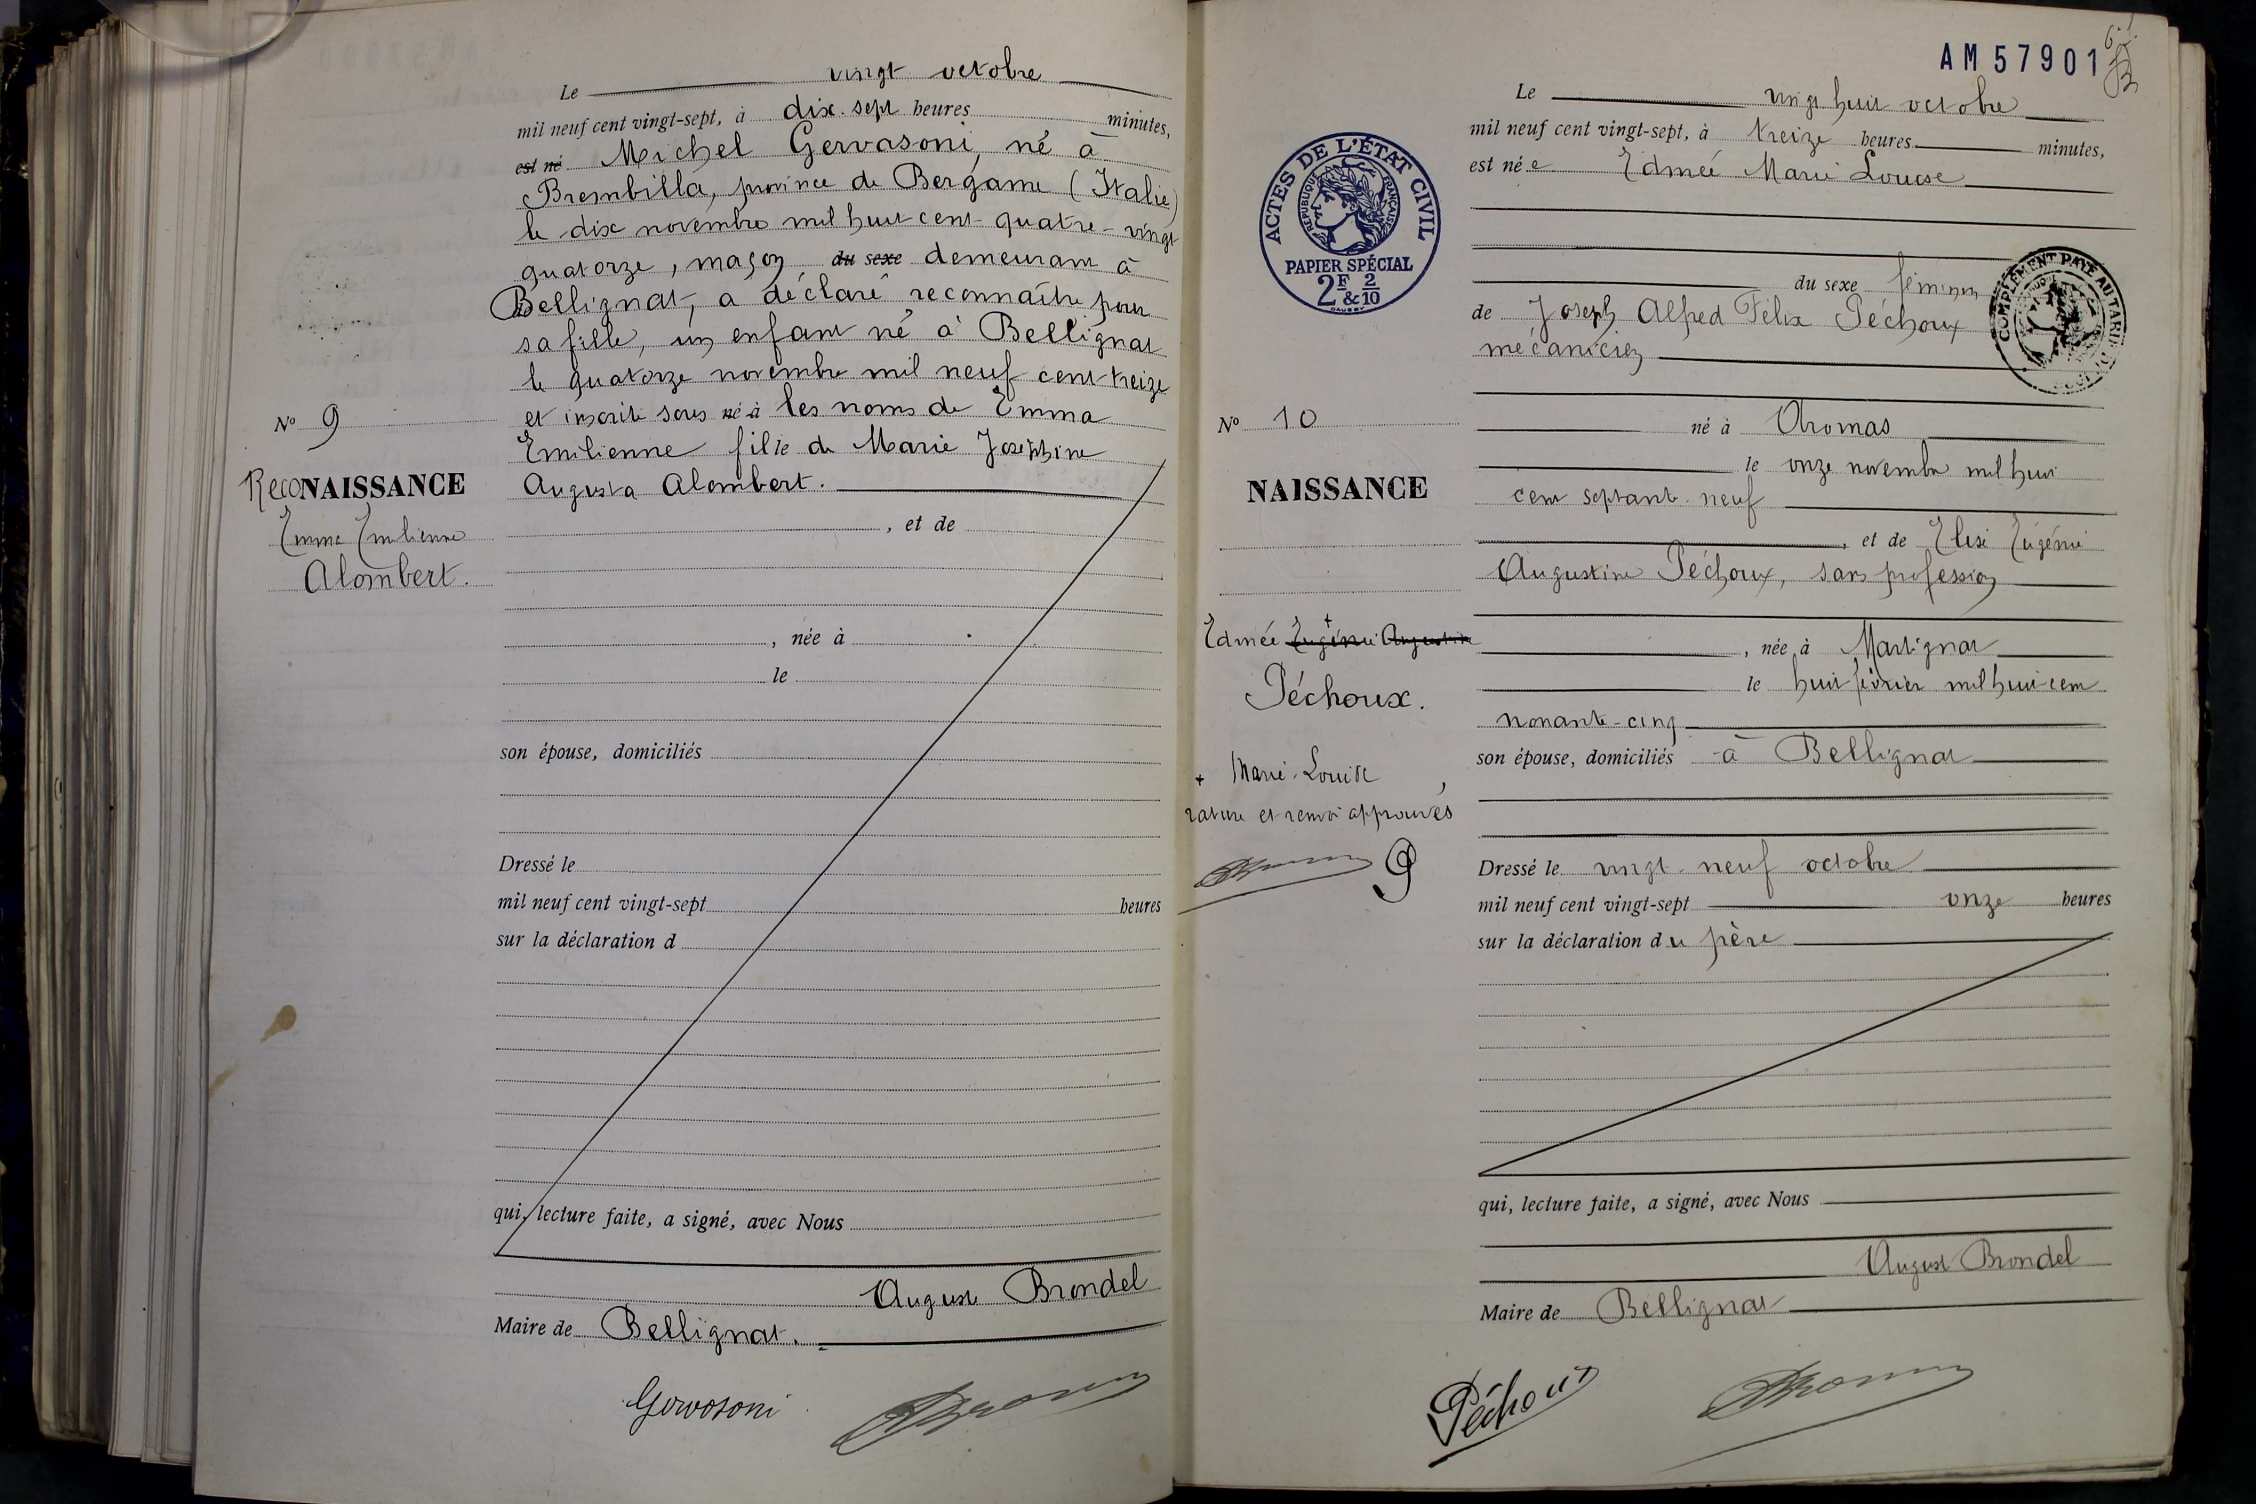 Le vingt octobre
mil neuf cent vingt-sept, à dix-sept heures minutes,
est né Michel Gervasoni, né à
Brembilla, province de Bergame (Italie)
le dix novembre mil huit cent quatre-vingt
quatorze, maçon, du sexe demeurant à
Bellignat, a déclaré reconnaître pour
sa fille, un enfant né à Bellignat
le quatorze novembre mil neuf cent treize
et inscrite sous né à les noms de Emma
Emilienne fille de Marie Joséphine
Augusta Alombert.
No 9
RecoNAISSANCE
Emma Emilienne
Alombert.
, et de
, née à
le
son épouse, domiciliés
Dressé le
mil neuf cent vingt-sept heures
sur la déclaration d
qui, lecture faite, a signé, avec Nous
Auguste Brondel
Maire de Bellignat.
Gervasoni
AM57901
ACTES DE L'ÉTAT CIVIL
RÉPUBLIQUE FRANÇAISE
PAPIER SPÉCIAL
2F & 2/10
COMPLÉMENT PAYÉ AU TARIF DE
Le vingt huit octobre
mil neuf cent vingt-sept, à treize heures minutes,
est née Edmée Marie Louise
du sexe féminin
de Joseph Alfred Félix Péchoux
mécanicien
né à Aromas
le onze novembre mil huit
cent septante-neuf
, et de Elise Eugénie
Augustine Péchoux, sans profession
, née à Martignat
le huit février mil huit cent
nonante-cinq
son épouse, domiciliés à Bellignat
No 10
NAISSANCE
Edmée Eugénie Augustine
Péchoux.
+ Marie-Louise
rature et renvoi approuvés
Dressé le vingt-neuf octobre
mil neuf cent vingt-sept onze heures
sur la déclaration du père
qui, lecture faite, a signé, avec Nous
Auguste Brondel
Maire de Bellignat
Péchoux